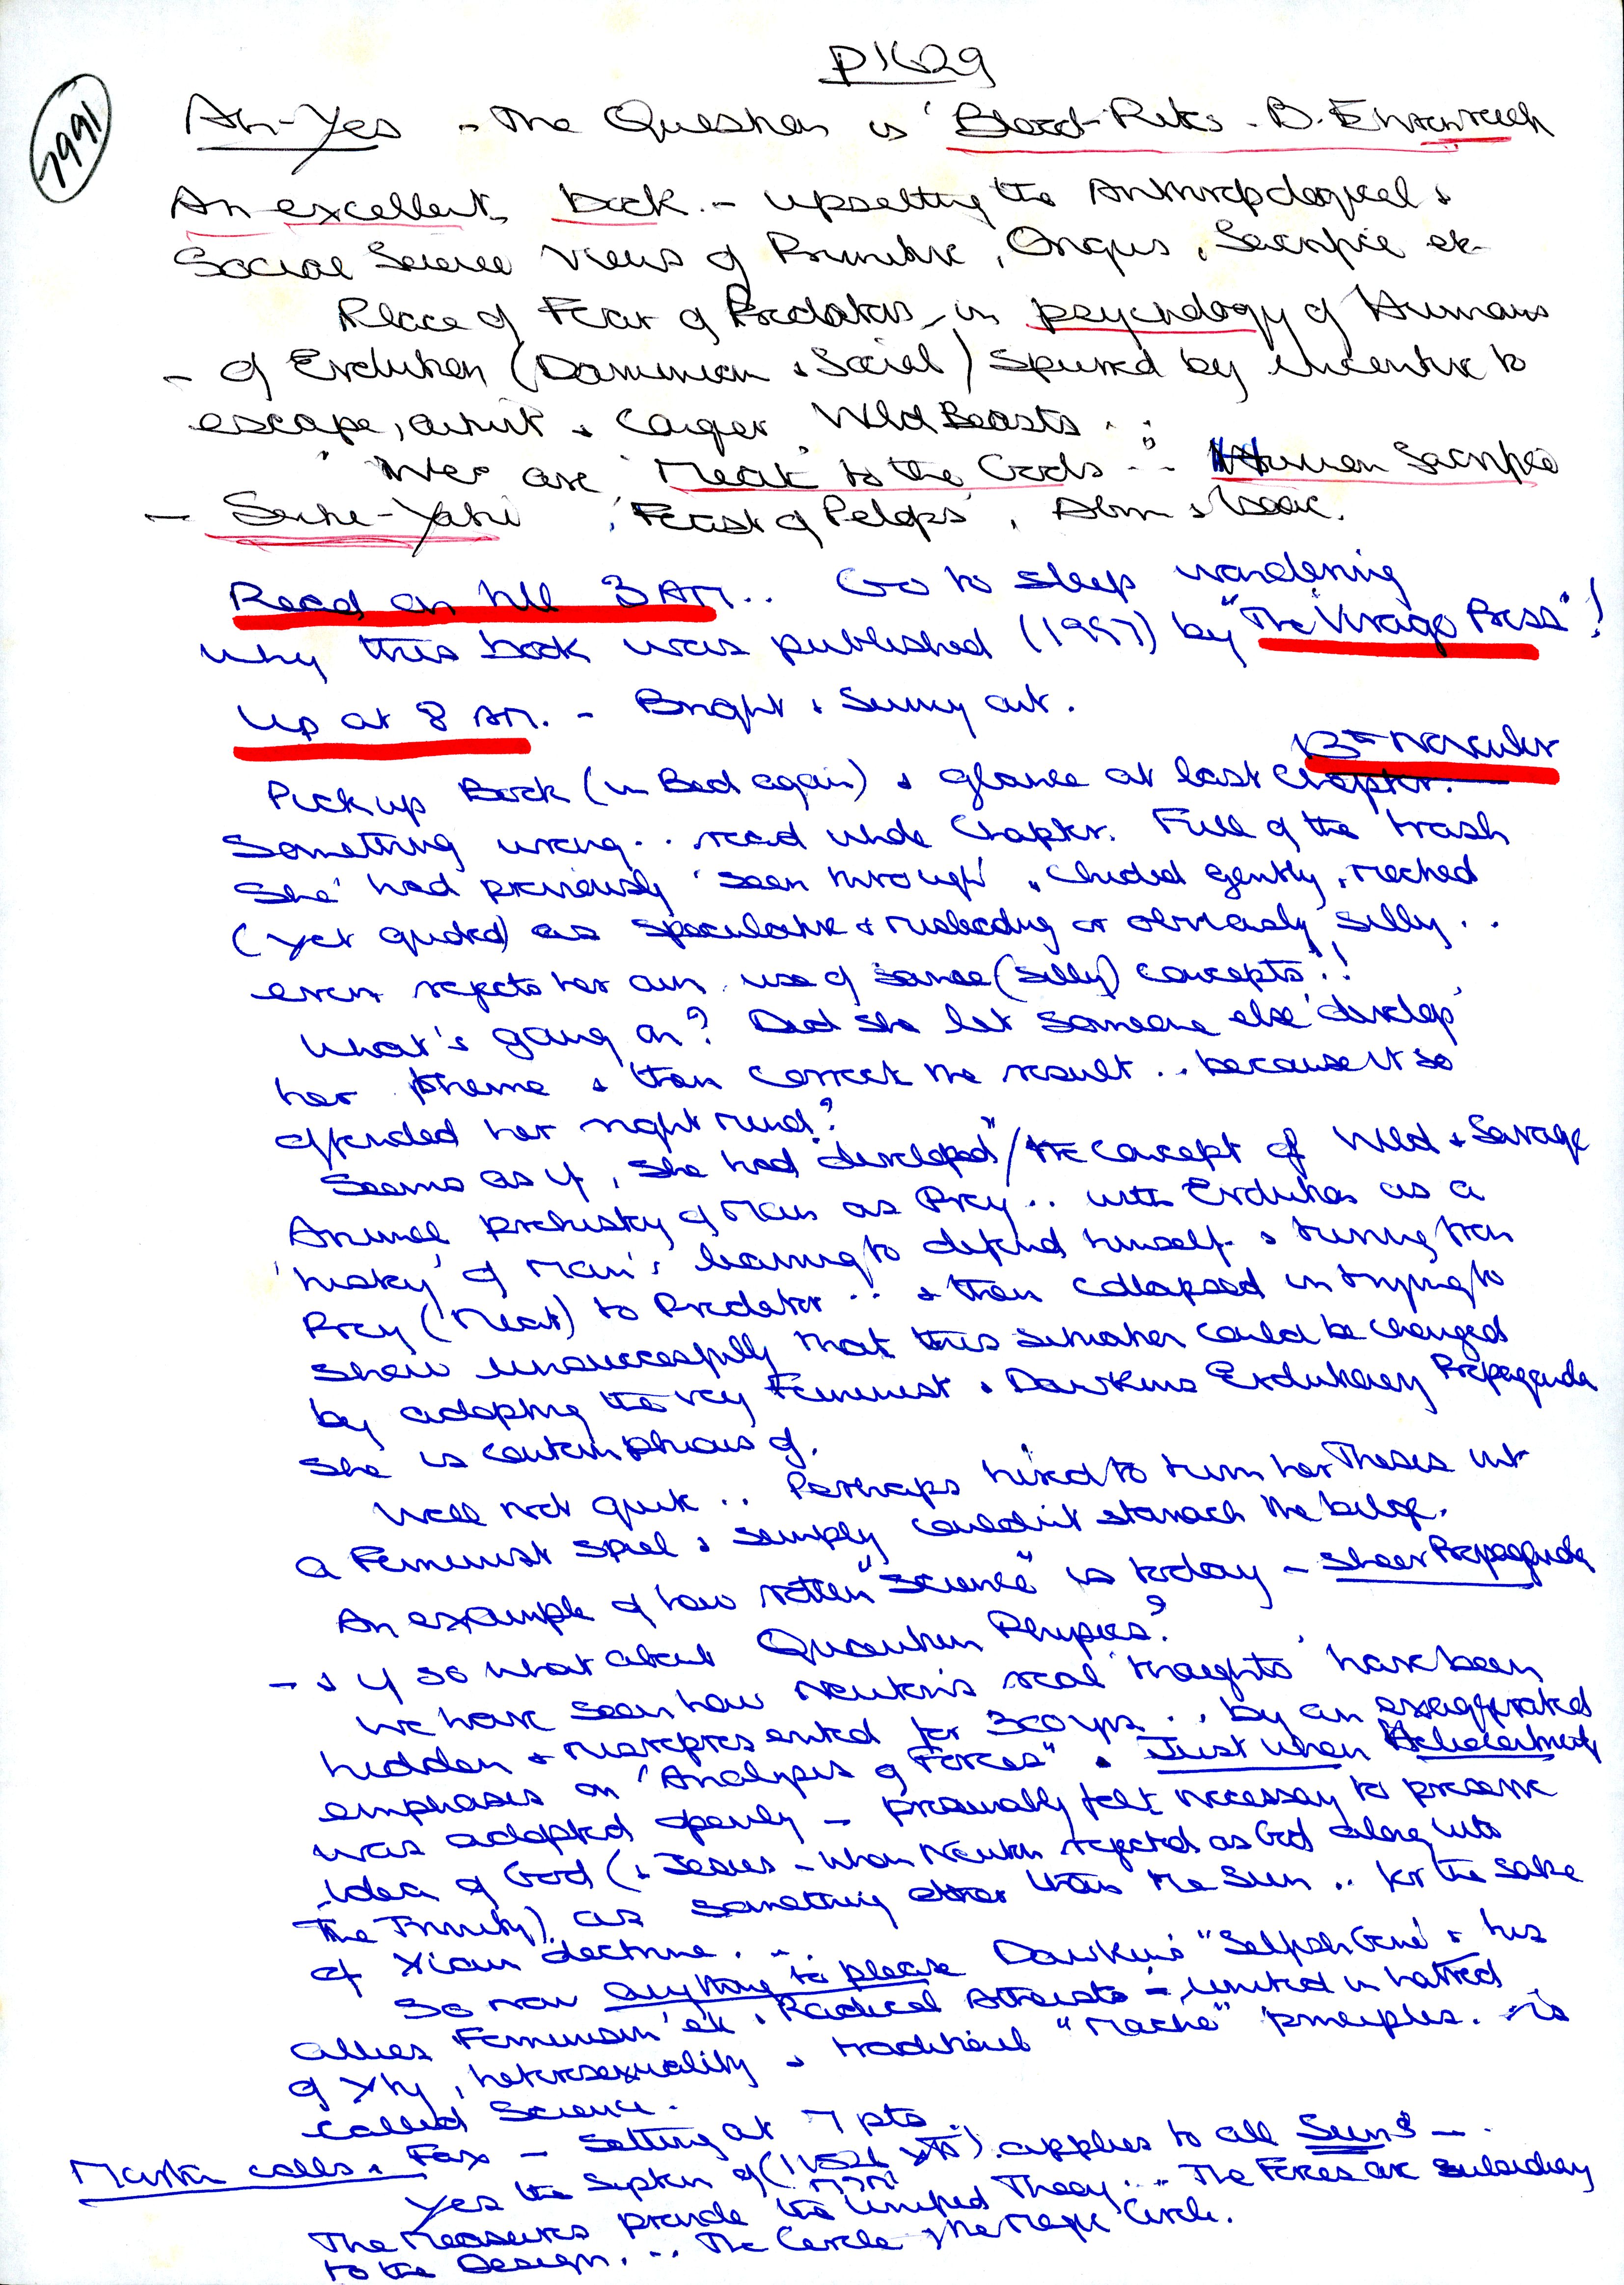 P1629
7991
Ah-Yes - The Question is 'Blood-Rites - B. Ehrenreich
An excellent book. - upsetting the Anthropological &
Social Science views of Primitive, Origins, Sacrifice etc
Place of Fear of Predators in psychology of Humans
- of Evolution (Darwinian & Social) spurred by incentive to
escape, outwit & Larger Wild Beasts ..
We are 'Meat' to the Gods ... Human Sacrifice
- 'Feast of Pelops', Abm & Isaac.
Read on till 3 AM.. Go to sleep wondering
why this book was published (1997) by "The Virago Press"!
Up at 8 AM. - Bright & Sunny out.
13th November
Pick up Book (in Bed again) & glance at last Chapter.
Something wrong.. read whole Chapter. Full of the trash
'She' had previously 'seen through', chided gently, mocked
(yet quoted) as speculative & misleading or obviously silly..
even rejects her own use of same (silly) concepts!!
What's going on? Did she let someone else 'develop'
her theme & then correct the result .. because it so
offended her right mind?
Seems as if, she had "developed" the concept of Wild & Savage
Animal prehistory of Man as Prey .. with Evolution as a
'history' of Man's learning to defend himself & turning from
Prey ('Meat') to Predator .. & then collapsed in trying to
show unsuccessfully that this situation could be changed
by adopting the very Feminist & Dawkins Evolutionary Propaganda
she is contemptuous of.
Well not quite .. Perhaps hired to turn her Theses into
a Feminist spiel & simply couldn't stomach the
An example of how rotten "Science" is today - Sheer Propaganda
- & if so what about Quantum Physics?
We have seen how Newton's real 'thoughts' have been
hidden & misrepresented for 300 yrs .. by an exaggerated
emphases on "Analysis of Forces". Just when
was adopted openly - presumably felt necessary to preserve
idea of God (& Jesus - whom Newton rejected as God along with
The Trinity) as something other than the Sun .. for the sake
of Xian doctrine. ...
So now anything to please Dawkins "Selfish Gene" & his
allies Feminism' etc & Radical Atheists - united in hatred
of Xty, heterosexuality & traditional "Macho" principles. is
called Science.
Martin calls & Fax - Setting at 7 pts ..
Yes the System of (11521 yrs) applies to all Suns - ..
The Measures provide the Unified Theory... The Forces are subsidiary
to the Design. ... The Circle, the Magic Circle.